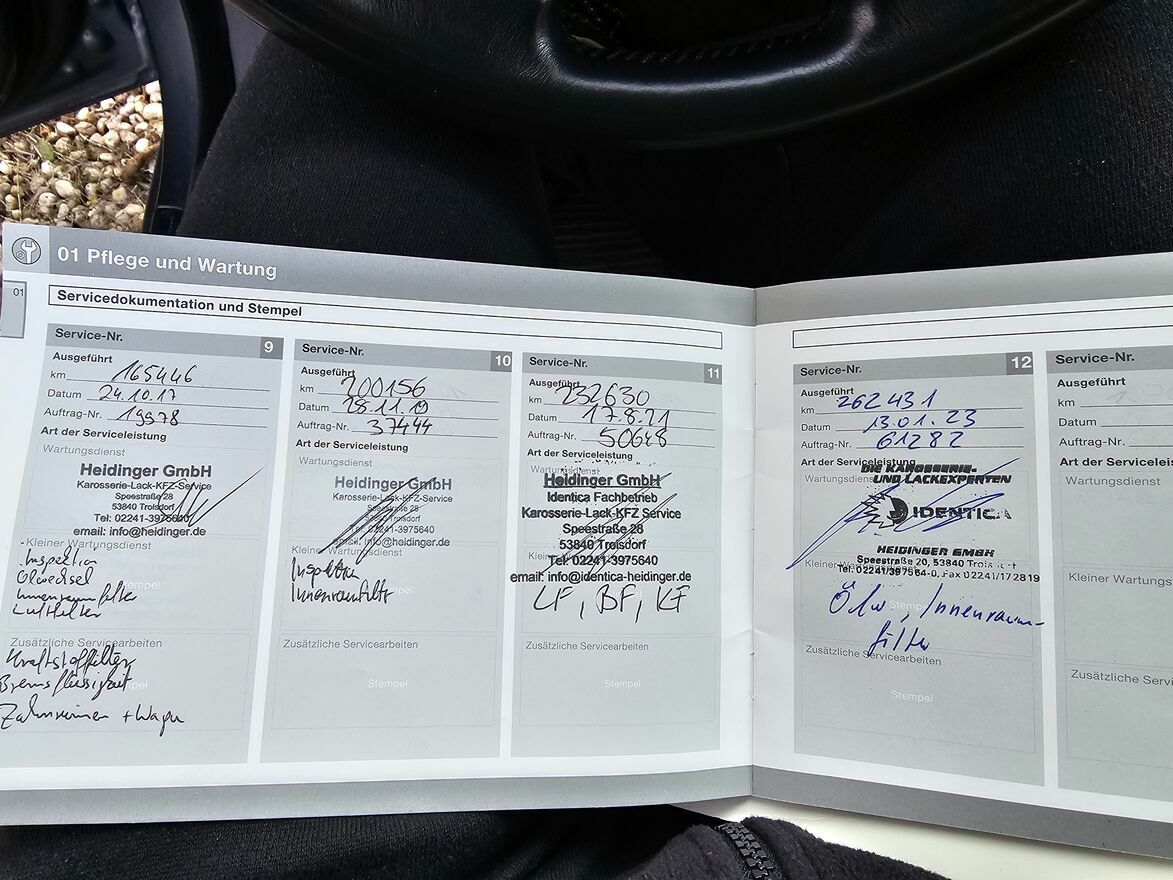 01 Pflege und Wartung
01
Servicedokumentation und Stempel
Service-Nr. 9
Ausgeführt
km 165446
Datum 24.10.17
Auftrag-Nr. 19978
Art der Serviceleistung
Wartungsdienst
Heidinger GmbH
Karosserie-Lack-KFZ-Service
Speestraße 28
53840 Troisdorf
Tel: 02241-3975640
email: info@heidinger.de
Kleiner Wartungsdienst
Inspektion
Ölwechsel
Innenraumfilter
Luftfilter
Stempel
Zusätzliche Servicearbeiten
Kraftstofffilter
Bremsflüssigkeit
Zahnriemen + Wapu
Service-Nr. 10
Ausgeführt
km 200156
Datum 28.11.19
Auftrag-Nr. 37444
Art der Serviceleistung
Wartungsdienst
Heidinger GmbH
Karosserie-Lack-KFZ-Service
Speestraße 28
53840 Troisdorf
Tel: 02241-3975640
email: info@heidinger.de
Kleiner Wartungsdienst
Inspektion
Innenraumfilter
Zusätzliche Servicearbeiten
Stempel
Service-Nr. 11
Ausgeführt
km 232630
Datum 17.8.21
Auftrag-Nr. 50648
Art der Serviceleistung
Wartungsdienst
Heidinger GmbH
Identica Fachbetrieb
Karosserie-Lack-KFZ Service
Speestraße 28
53840 Troisdorf
Tel: 02241-3975640
email: info@identica-heidinger.de
LF, BF, KF
Zusätzliche Servicearbeiten
Stempel
Service-Nr. 12
Ausgeführt
km 262431
Datum 13.01.23
Auftrag-Nr. 61282
Art der Serviceleistung
Wartungsdienst
DIE KAROSSERIE-
UND LACKEXPERTEN
IDENTICA
HEIDINGER GMBH
Speestraße 20, 53840 Troisdorf
Tel. 02241/397564-0, Fax 02241/172819
Kleiner Wartungsdienst
Ölw, Innenraum-
filter
Stempel
Zusätzliche Servicearbeiten
Stempel
Service-Nr.
Ausgeführt
km
Datum
Auftrag-Nr.
Art der Serviceleis
Wartungsdienst
Kleiner Wartungs
Zusätzliche Servi